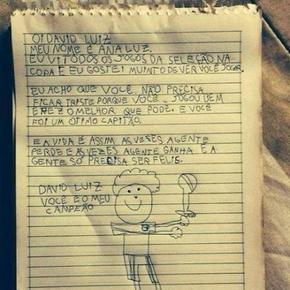 OI DAVID LUIZ
MEU NOME É ANA LUZ.
EU VI TODOS OS JOGOS DA SELEÇÃO NA
COPA E EU GOSTEI MUINTO DE VER VOCÊ JOGAR.
EU ACHO QUE VOCÊ NÃO PRECISA
FICAR TRISTE PORQUE VOCÊ JOGOU BEM
E FEZ O MELHOR QUE PODE. E VOCÊ
FOI UM OTIMO CAPITÃO.
E A VIDA É ASSIM AS VESES AGENTE
PERDE E AS VEZES AGENTE GANHA E A
GENTE SÓ PRECISA SER FELIS.
DAVID LUIZ
VOCÊ É O MEU
CAMPEÃO